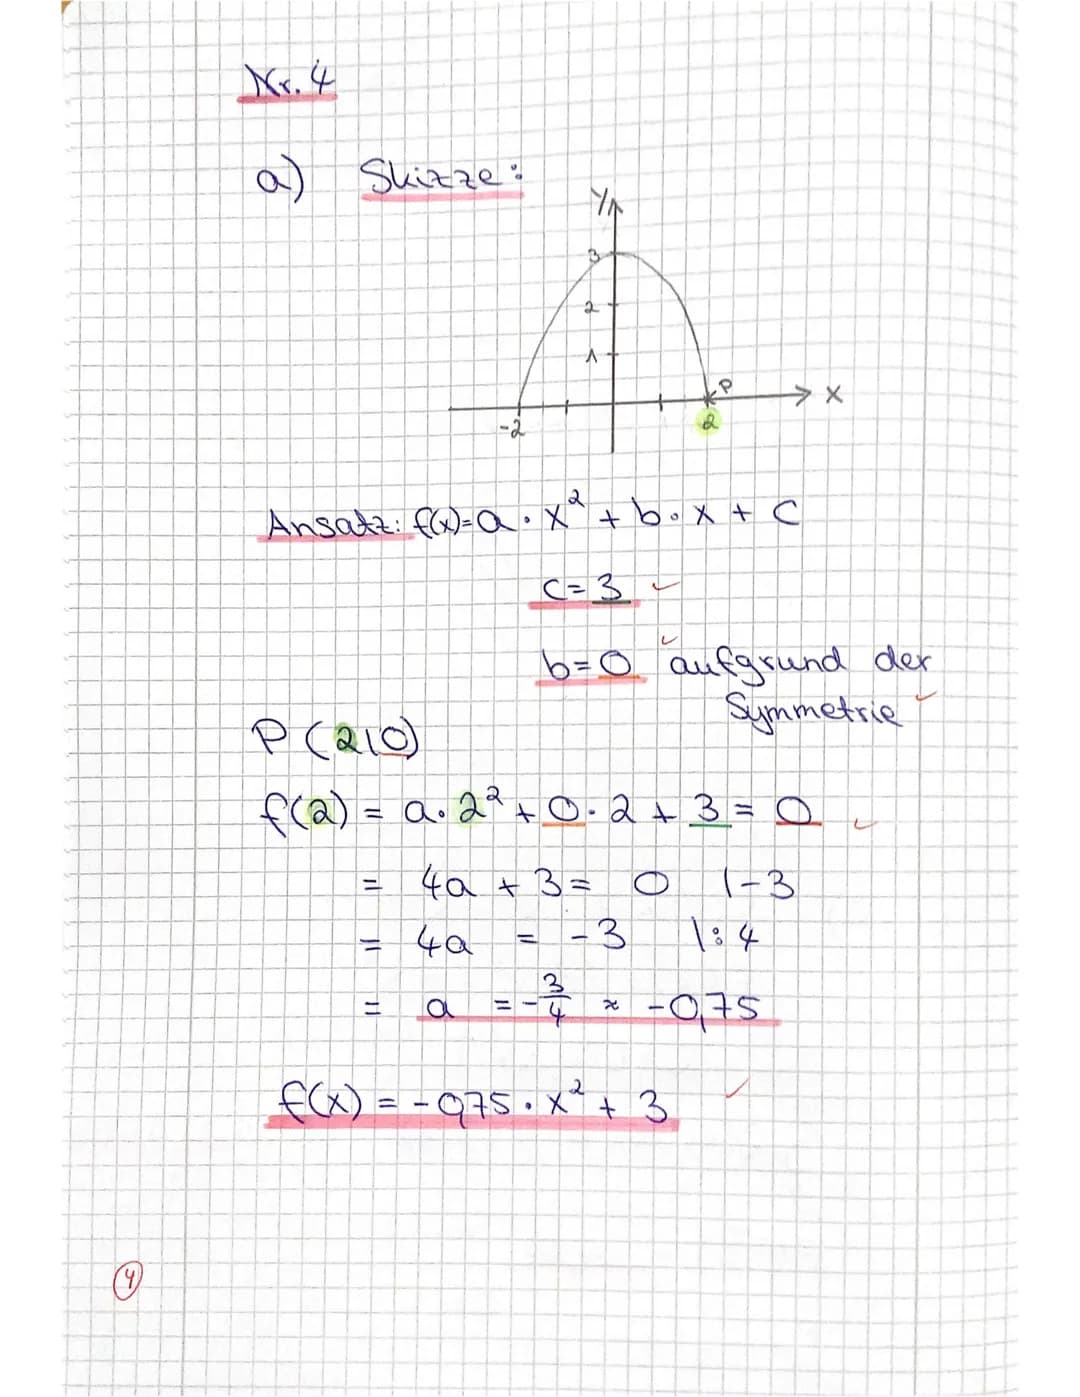 Nr. 4
a) Skizze:
y
3
2
1
P
x
-2
2
Ansatz: f(x)=a·x² + b·x + c
c=3 ✓
b=0 ✓ aufgrund der
Symmetrie ✓
P(2|0)
f(2) = a·2² + 0·2 + 3 = 0 ✓
= 4a + 3 = 0 |-3
= 4a = -3 |:4
= a = -3/4 ≈ -0,75
f(x) = -0,75·x² + 3 ✓
4